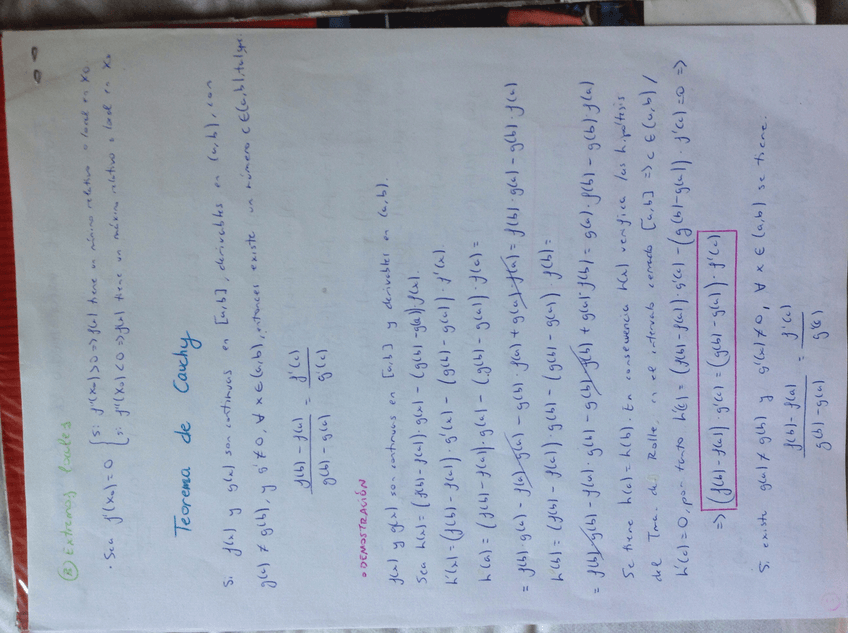 ⑧ Extremos locales
· Sea f'(x₀)=0 [ si f''(x₀)>0 => f(x) tiene un mínimo relativo o local en x₀
si f''(x₀)<0 => f(x) tiene un máximo relativo o local en x₀
Teorema de Cauchy
Si f(x) y g(x) son continuas en [a,b], derivables en (a,b), con
g(a) ≠ g(b), y g' ≠ 0, ∀ x ∈ (a,b), entonces existe un número c ∈ (a,b), tal que:
(f(b) - f(a))/(g(b) - g(a)) = f'(c)/g'(c)
· DEMOSTRACIÓN
f(x) y g(x) son continuas en [a,b] y derivables en (a,b).
Sea h(x) = (f(b) - f(a))·g(x) - (g(b) - g(a))·f(x).
h'(x) = (f(b) - f(a))·g'(x) - (g(b) - g(a))·f'(x)
h(a) = (f(b) - f(a))·g(a) - (g(b) - g(a))·f(a) =
= f(b)·g(a) - f(a)·g(a) - g(b)·f(a) + g(a)·f(a) = f(b)·g(a) - g(b)·f(a)
h(b) = (f(b) - f(a))·g(b) - (g(b) - g(a))·f(b) =
= f(b)·g(b) - f(a)·g(b) - g(b)·f(b) + g(a)·f(b) = g(a)·f(b) - g(b)·f(a)
Se tiene h(a) = h(b). En consecuencia h(x) verifica las hipótesis
del Tma. de Rolle, en el intervalo cerrado [a,b] => c ∈ (a,b) /
h'(c) = 0, por tanto h'(c) = (f(b) - f(a))·g'(c) - (g(b) - g(a))·f'(c) = 0 =>
=> (f(b) - f(a))·g'(c) = (g(b) - g(a))·f'(c)
Si existe g(a) ≠ g(b) y g'(x) ≠ 0, ∀ x ∈ (a,b) se tiene:
(f(b) - f(a))/(g(b) - g(a)) = f'(c)/g'(c)